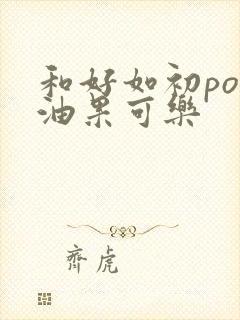 和好如初po
油果可樂
齊虎